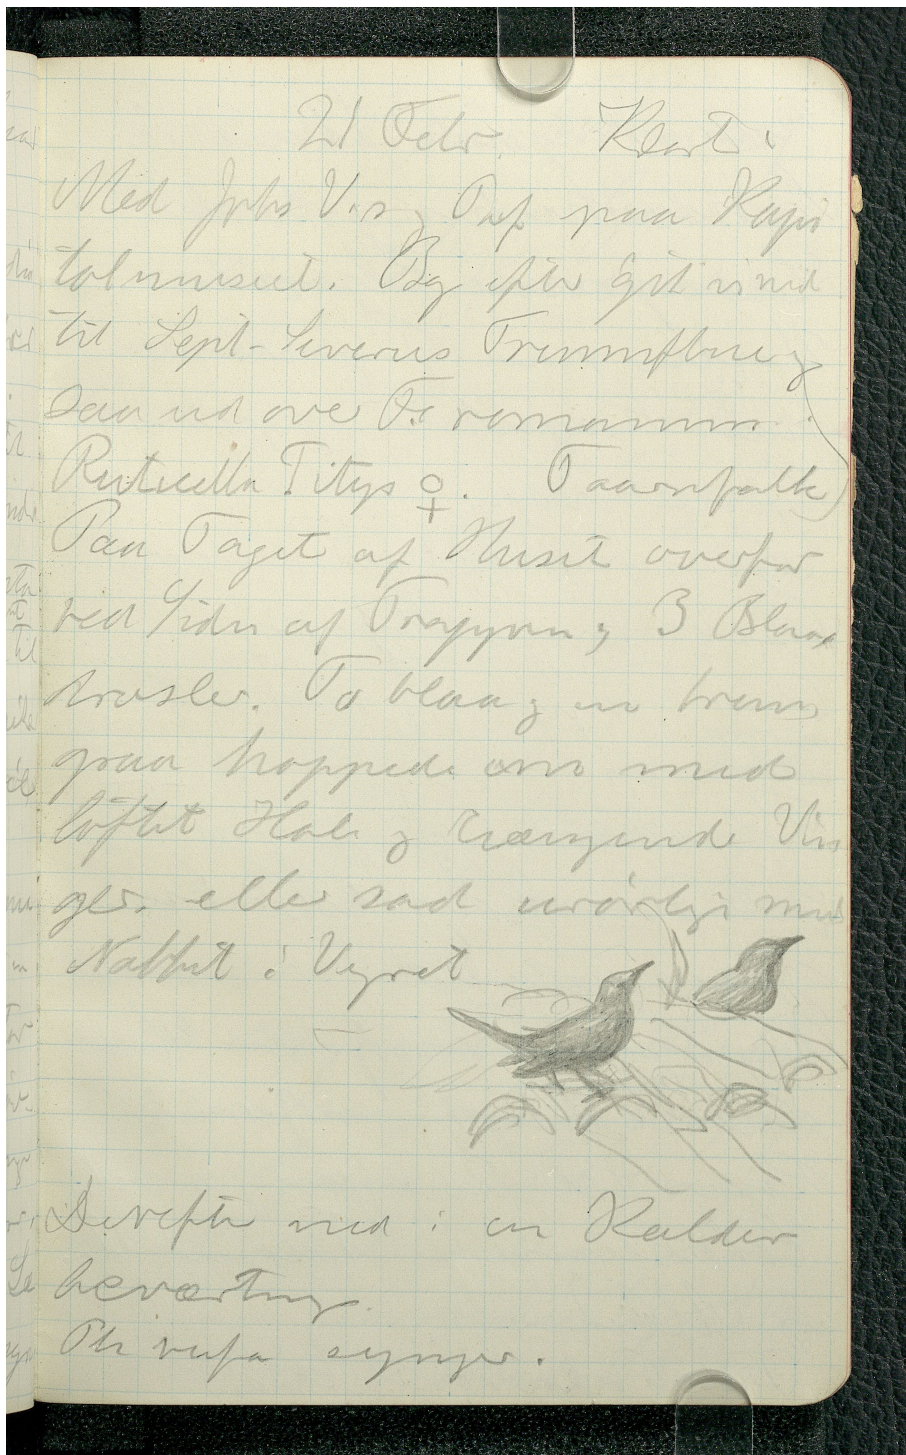 21 Febr. Klart.
Med Johs V. og paa Kapi
tolmuseet. Bag efter gik vi ned
til Sept-Severus Triumfbue og
saa ud over Fo romanum.
Ruticilla Titys ♀. Taarnfalk
Paa Taget af Huset overfor
ved Siden af Trappen, 3 Blaa
drosler. To blaa og en brun
graa hoppede om med
løftet Hale og hængende Vin
ger. eller sad urørlige med
Næbbet i Vejret
Derefter ned i en Kælder
beværtning.
Ph rufa synger.